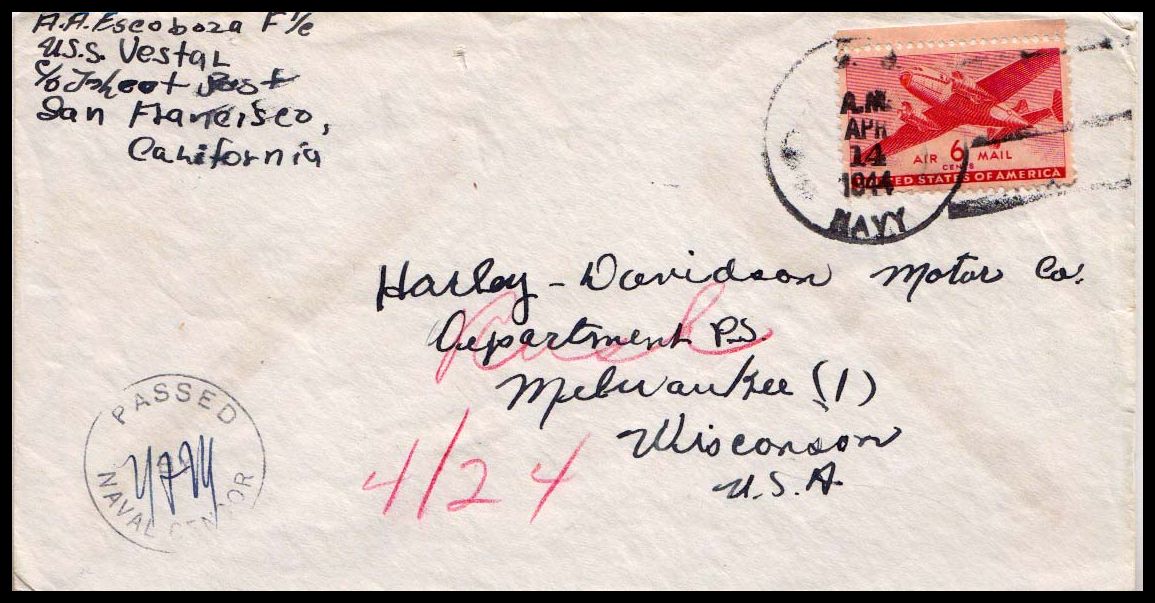 A.A. Escoboza F 1/c
U.S.S. Vestal
c/o Fleet Post
San Francisco,
California
A.M.
APR
14
1944
NAVY
AIR 6 MAIL
CENTS
UNITED STATES OF AMERICA
Harley-Davidson Motor Co.
Department P.S.
Milwaukee (1)
Wisconson
U.S.A.
Rush
4/24
PASSED
NAVAL CENSOR